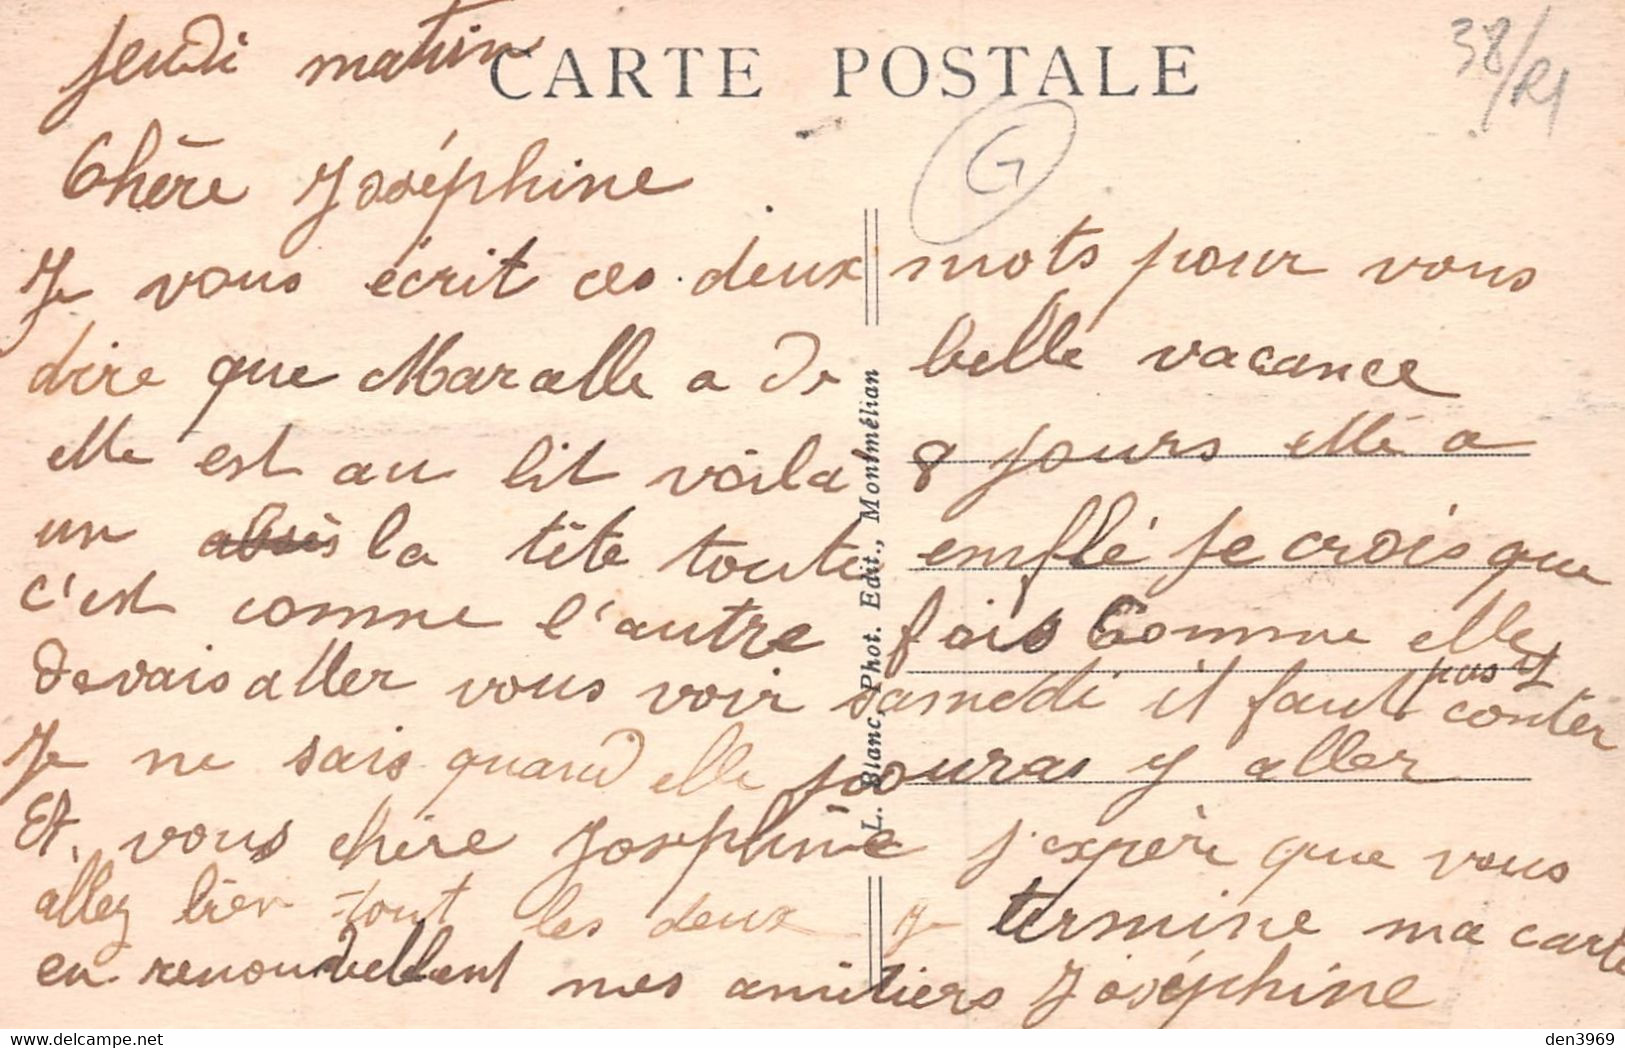 Jeudi matin
CARTE POSTALE
38/R1
G
Chère Joséphine
Je vous écrit ces deux mots pour vous
dire que Maralle a de belle vacance
elle est au lit voila 8 jours elle a
un absès la tête toute emflé je crois que
c'est comme l'autre fois Comme elle
devais aller vous voir samedi il faut pas y conter
Je ne sais quand elle pouras y aller
Et vous chère Joséphine j'expère que vous
allez bien tout les deux je termine ma carte
en renouvellent mes amitiers Joséphine
L. Blanc, Phot. Edit., Montmélian
den3969